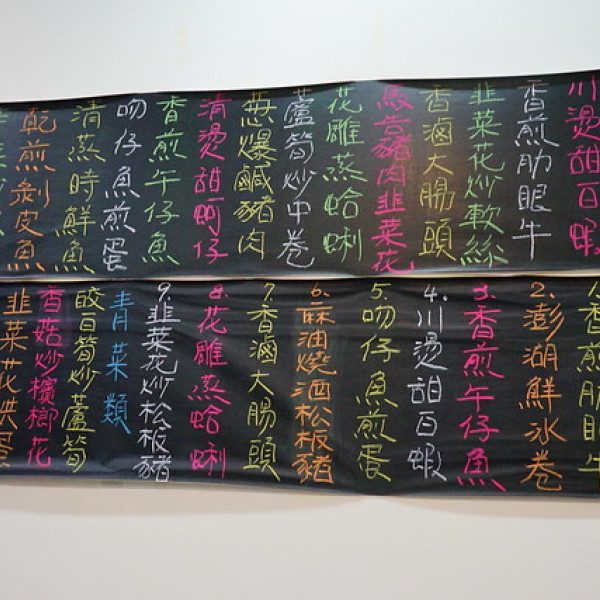 川燙甜百蝦
香煎肋眼牛
韭菜花炒軟絲
香滷大腸頭
馬告豬肉韭菜花
花雕蒸蛤蜊
蘆筍炒中卷
爆鹹豬肉
清燙甜蚵仔
香煎午仔魚
吻仔魚煎蛋
清蒸時鮮魚
乾煎剝皮魚
1.香煎肋眼牛
2.澎湖鮮冰卷
3.香煎午仔魚
4.川燙甜百蝦
5.吻仔魚煎蛋
6.麻油燒酒松板豬
7.香滷大腸頭
8.花雕蒸蛤蜊
9.韭菜花炒松板豬
青菜類
皎百筍炒蘆筍
香菇炒檳榔花
韭菜花烘蛋